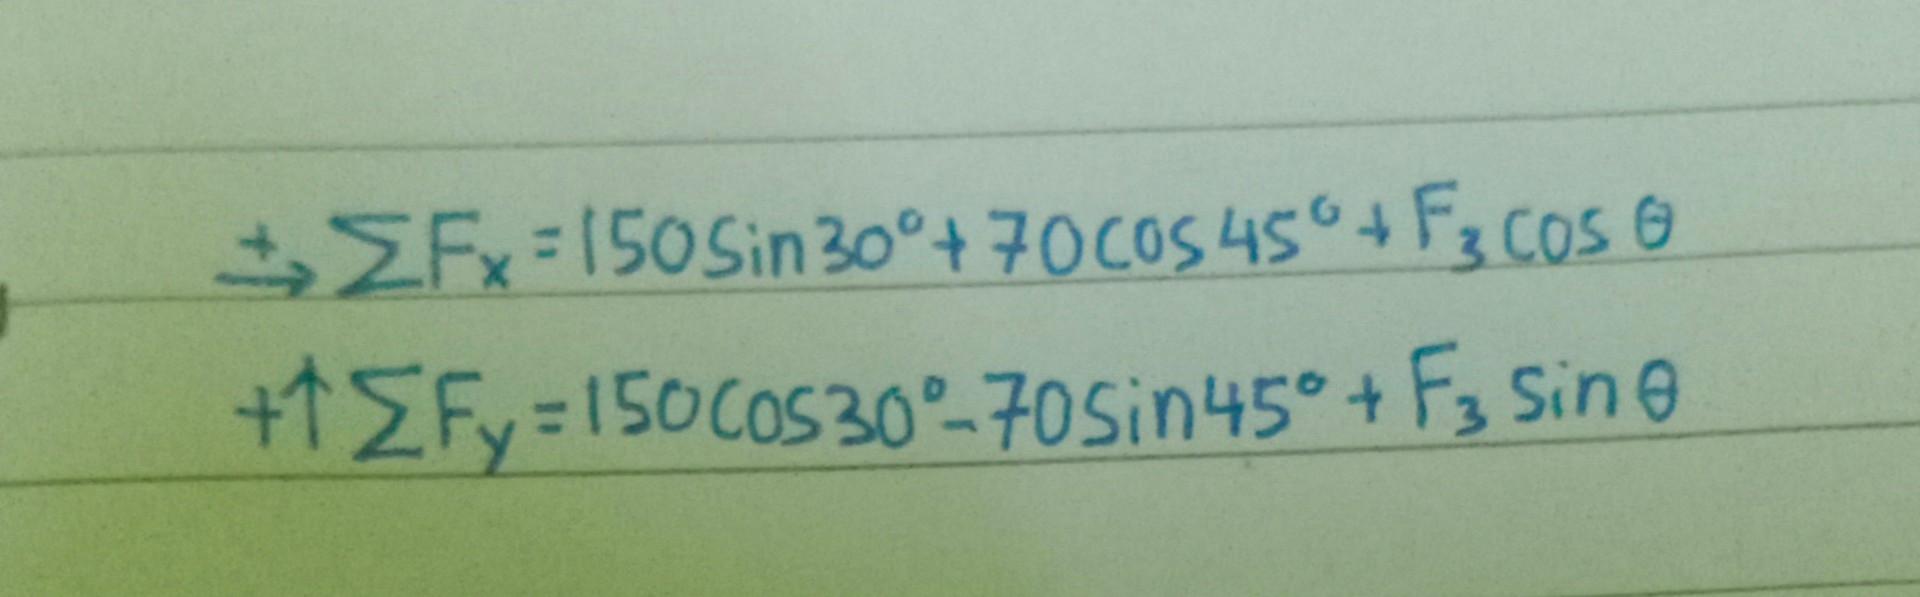 +→ ΣFx = 150 sin 30° + 70 cos 45° + F₃ cos θ
+↑ ΣFy = 150 cos 30° - 70 sin 45° + F₃ sin θ